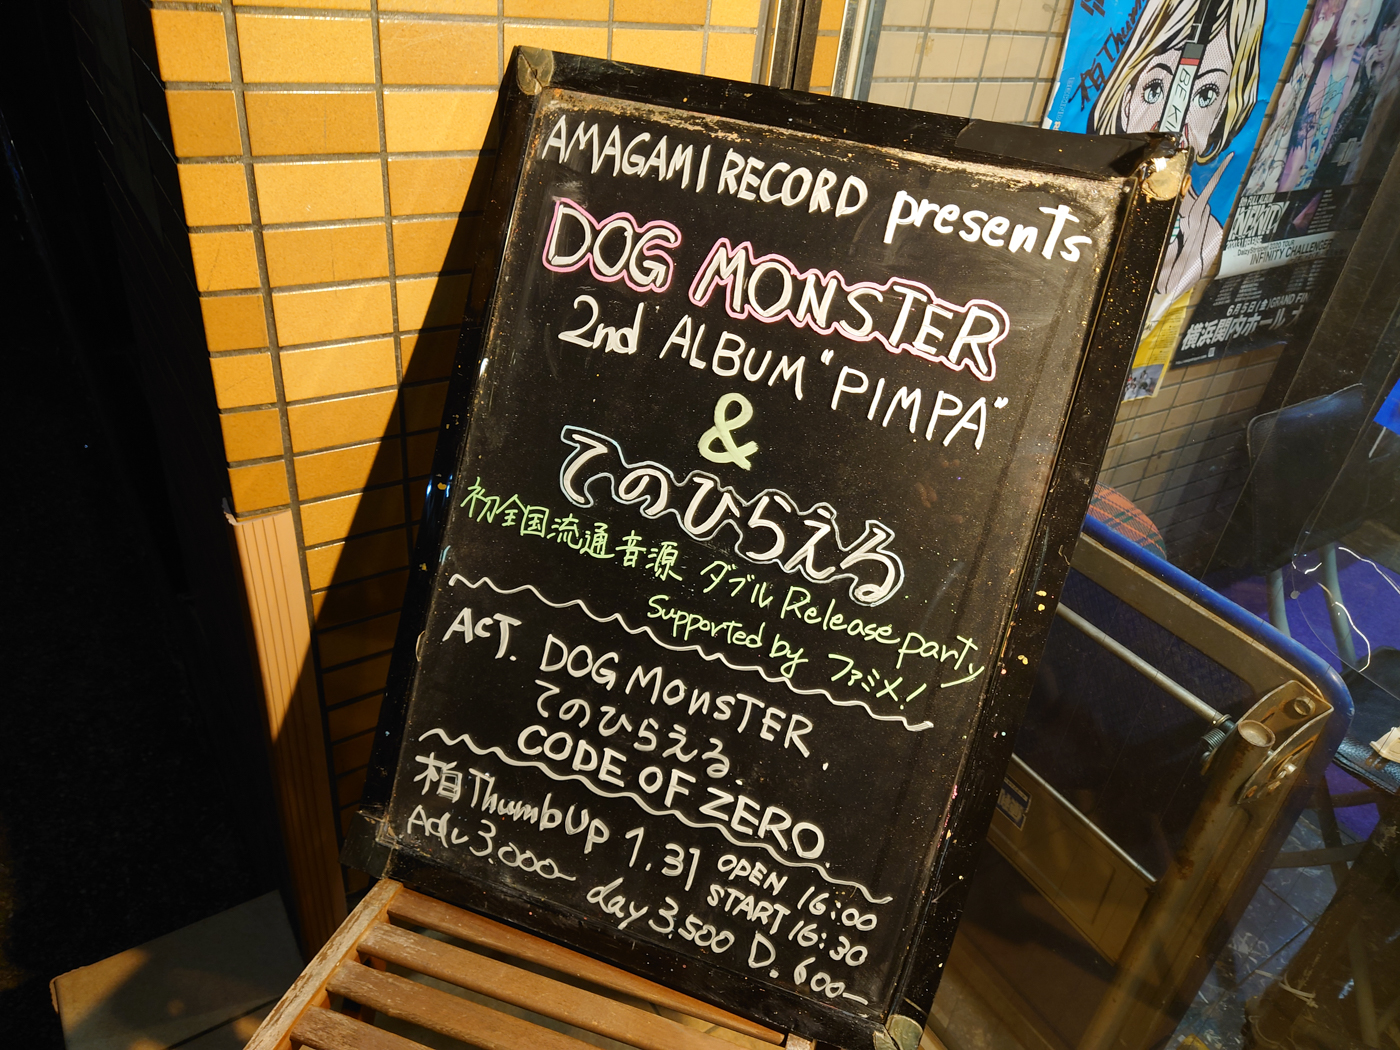 AMAGAMI RECORD presents
DOG MONSTER
2nd ALBUM "PIMPA"
&
てのひらえる
初全国流通音源 ダブル Release party
Supported by ファミメ!
AcT. DOG MONSTER.
てのひらえる.
CODE OF ZERO.
柏 ThumbUp 1.31 OPEN 16:00
START 16:30
Adv 3.000- day 3.500 D. 600-
INFINITY
INFINITY CHALLENGER
6月5日(金)GRAND FIN
横浜関内ホール